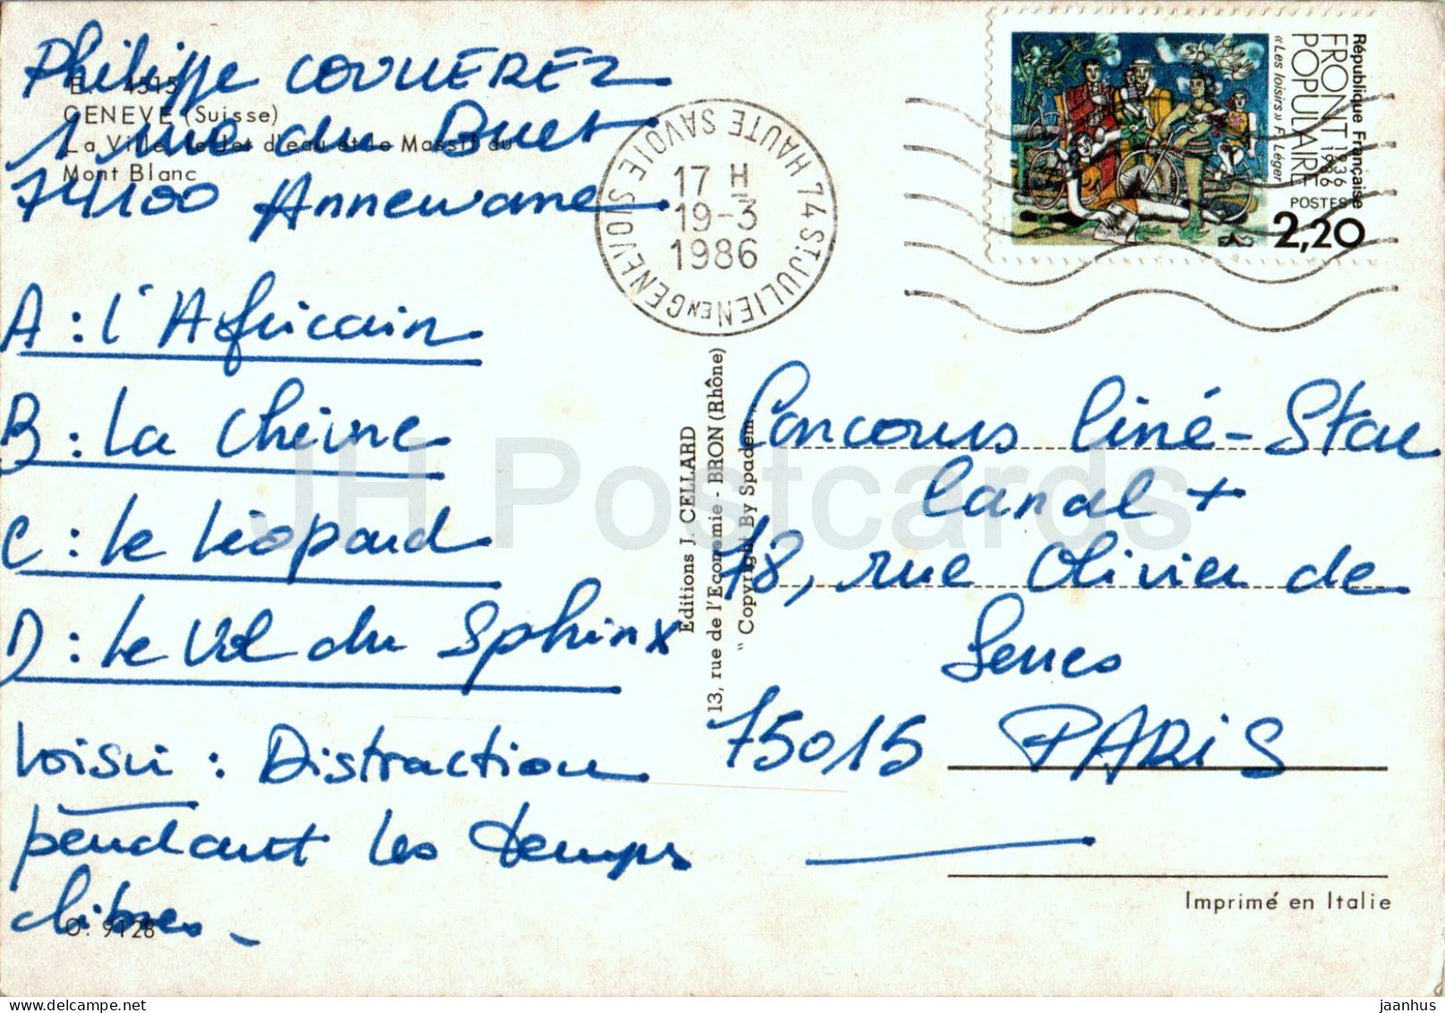 Philippe COVUEREZ
E. 4515
GENEVE (Suisse)
1 rue du Buet
La Ville, le Jet d'eau et le Massif du
Mont Blanc
74100 Annemasse
A : l'Africain
B : La Chèvre
C : Le Léopard
D : Le Vol du Sphinx
Loisir : Distraction
pendant les temps
libres.
O. 9128
74 ST JULIEN EN GENEVOIS
HAUTE SAVOIE
17 H
19-3
1986
République Française
FRONT 1936
POPULAIRE 1986
«Les loisirs» F. Léger
POSTES
2,20
Editions J. CELLARD
13, rue de l'Economie - BRON (Rhône)
" Copyright By Spadem "
Concours Ciné-Star
Canal +
78, rue Olivier de
Serres
75015 PARIS
Imprimé en Italie
JH Postcards
jaanhus